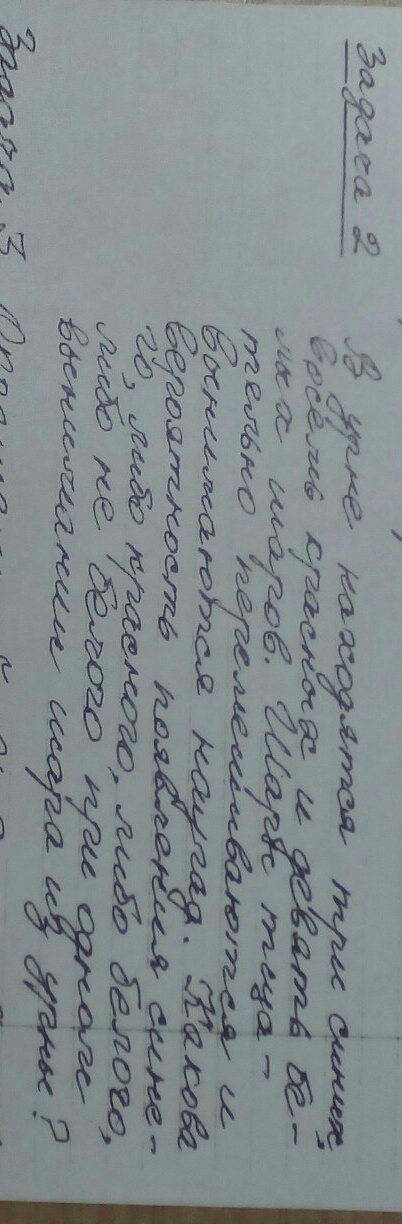 Задача 2
В урне находятся три синих,
восемь красных и девять бе-
лых шаров. Шары тща-
тельно перемешиваются и
вынимаются наугад. Какова
вероятность появления сине-
го, либо красного, либо белого,
либо не белого при одном
вынимании шара из урны?
Задача 3